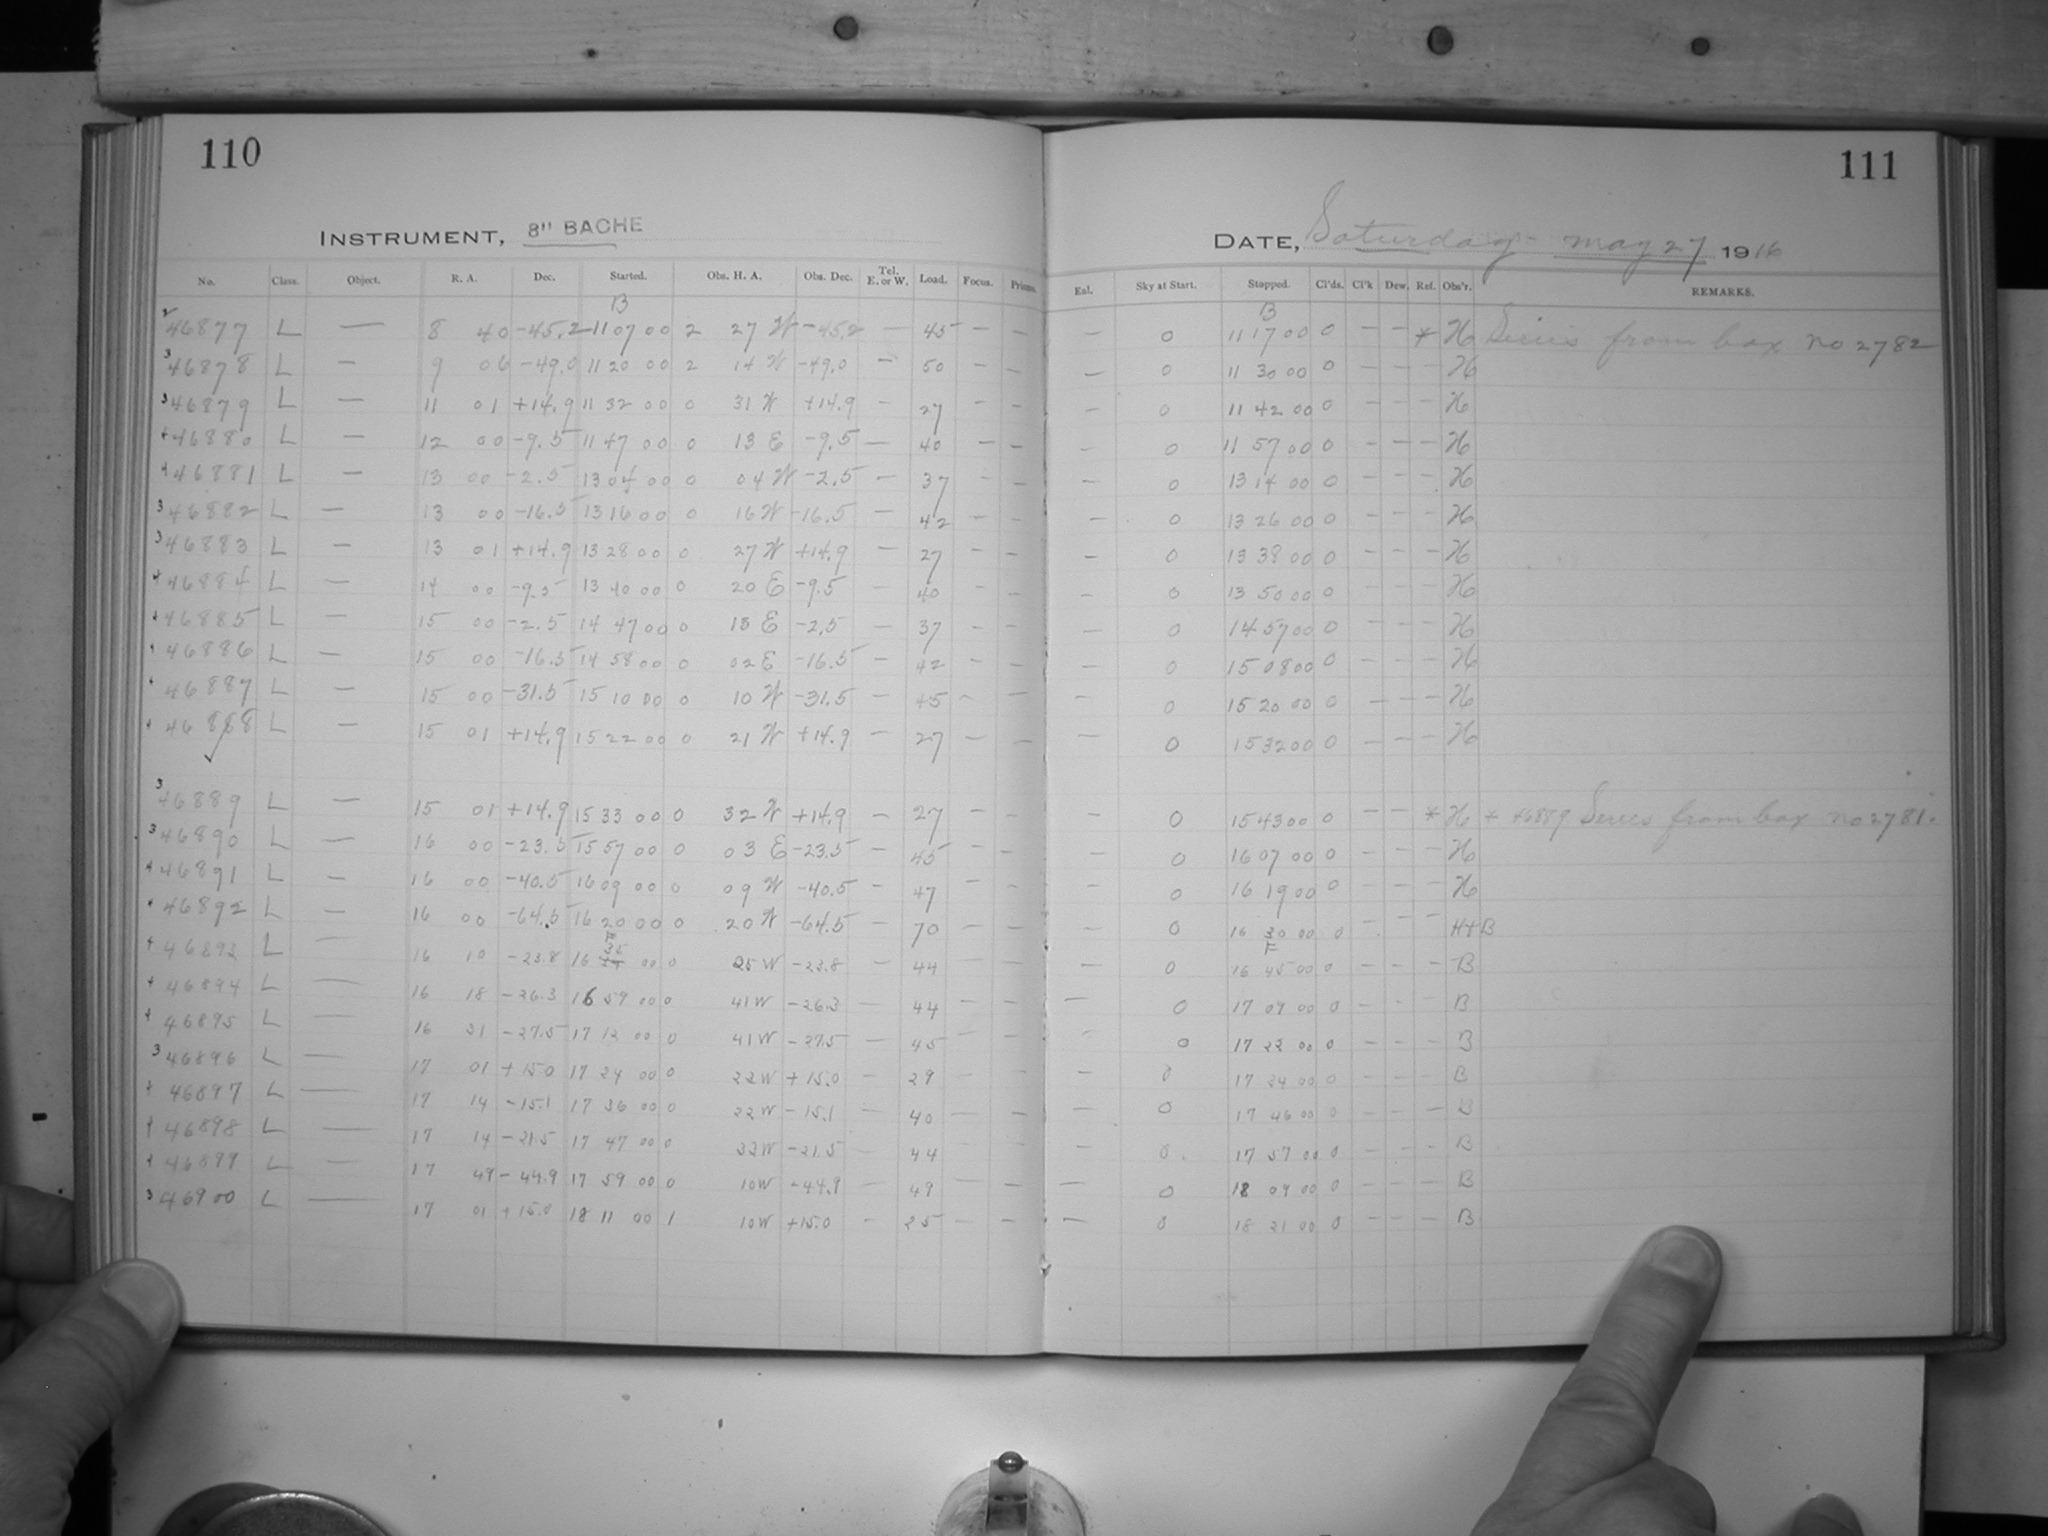 110
111
INSTRUMENT, 8" BACHE
DATE, Saturday - may 27 1916
No. Class. Object. R. A. Dec. Started. Obs. H. A. Obs. Dec. Tel. E. or W. Load. Focus. Prisms. Eal. Sky at Start. Stopped. Cl'ds. Cl'k Dew. Ref. Obs'r. REMARKS.
B B
2 46877 L — 8 40 -45.2 11 07 00 2 27 W -45.2 — 45 — — — 0 11 17 00 0 — — * H Series from box no 2782
3 46878 L — 9 06 -49.0 11 20 00 2 14 W -49.0 — 50 — — — 0 11 30 00 0 — — — H
3 46879 L — 11 01 +14.9 11 32 00 0 31 W +14.9 — 27 — — — 0 11 42 00 0 — — — H
4 46880 L — 12 00 -9.5 11 47 00 0 13 E -9.5 — 40 — — — 0 11 57 00 0 — — — H
4 46881 L — 13 00 -2.5 13 04 00 0 04 W -2.5 — 37 — — — 0 13 14 00 0 — — — H
3 46882 L — 13 00 -16.5 13 16 00 0 16 W -16.5 — 42 — — — 0 13 26 00 0 — — — H
3 46883 L — 13 01 +14.9 13 28 00 0 27 W +14.9 — 27 — — — 0 13 38 00 0 — — — H
4 46884 L — 14 00 -9.5 13 40 00 0 20 E -9.5 — 40 — — — 0 13 50 00 0 — — — H
4 46885 L — 15 00 -2.5 14 47 00 0 13 E -2.5 — 37 — — — 0 14 57 00 0 — — — H
4 46886 L — 15 00 -16.5 14 58 00 0 02 E -16.5 — 42 — — — 0 15 08 00 0 — — — H
4 46887 L — 15 00 -31.5 15 10 00 0 10 W -31.5 — 45 — — — 0 15 20 00 0 — — — H
4 46888 L — 15 01 +14.9 15 22 00 0 21 W +14.9 — 27 — — — 0 15 32 00 0 — — — H
✓
3 46889 L — 15 01 +14.9 15 33 00 0 32 W +14.9 — 27 — — — 0 15 43 00 0 — — * H * 46889 Series from box no 2781.
3 46890 L — 16 00 -23.5 15 57 00 0 03 E -23.5 — 45 — — — 0 16 07 00 0 — — — H
4 46891 L — 16 00 -40.5 16 09 00 0 09 W -40.5 — 47 — — — 0 16 19 00 0 — — — H
4 46892 L — 16 00 -64.5 16 20 00 0 20 W -64.5 — 70 — — — 0 16 30 00 0 — — — H+B
F F
4 46893 L — 16 10 -23.8 16 35 00 0 25 W -23.8 — 44 — — — 0 16 45 00 0 — — — B
4 46894 L — 16 18 -26.3 16 59 00 0 41 W -26.3 — 44 — — — 0 17 09 00 0 — — — B
4 46895 L — 16 31 -27.5 17 12 00 0 41 W -27.5 — 45 — — — 0 17 22 00 0 — — — B
3 46896 L — 17 01 +15.0 17 24 00 0 22 W +15.0 — 29 — — — 0 17 24 00 0 — — — B
4 46897 L — 17 14 -15.1 17 36 00 0 22 W -15.1 — 40 — — — 0 17 46 00 0 — — — B
4 46898 L — 17 14 -21.5 17 47 00 0 33 W -21.5 — 44 — — — 0 17 57 00 0 — — — B
4 46899 L — 17 49 -44.9 17 59 00 0 10 W -44.9 — 49 — — — 0 18 09 00 0 — — — B
3 46900 L — 17 01 +15.0 18 11 00 1 10 W +15.0 — 25 — — — 0 18 21 00 0 — — — B